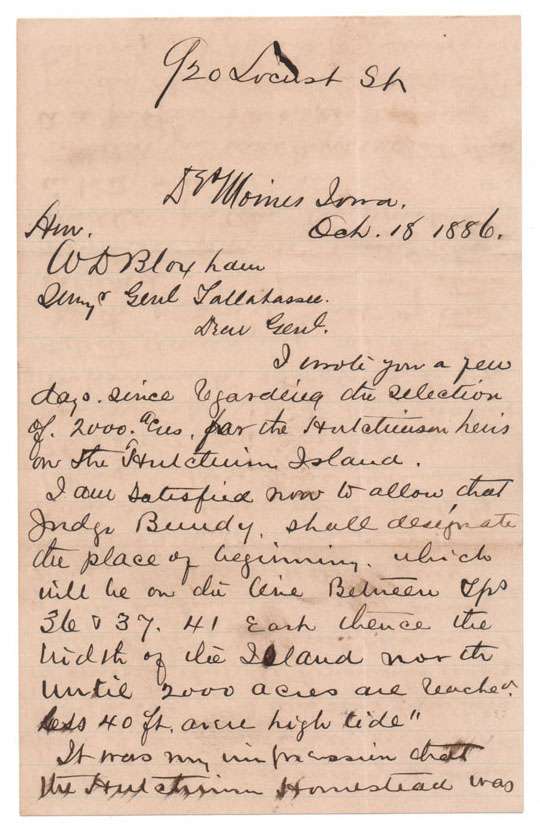 920 Locust St
Des Moines Iowa.
Hon. Oct. 18 1886.
W D Bloxham
Genl Tallahassee.
Dear Genl.
I wrote you a few
days. since regarding the selection
of. 2000. acres, for the Hutchinson heirs
on the Island.
I am satisfied now to allow, that
Judge Bundy, shall designate
the place of beginning. which
will be on the line Between Tps
36 & 37. 41 East thence the
width of the Island north
until 2000 acres are reached.
less 40 ft. above high tide"
It was my impression that
the Homestead was